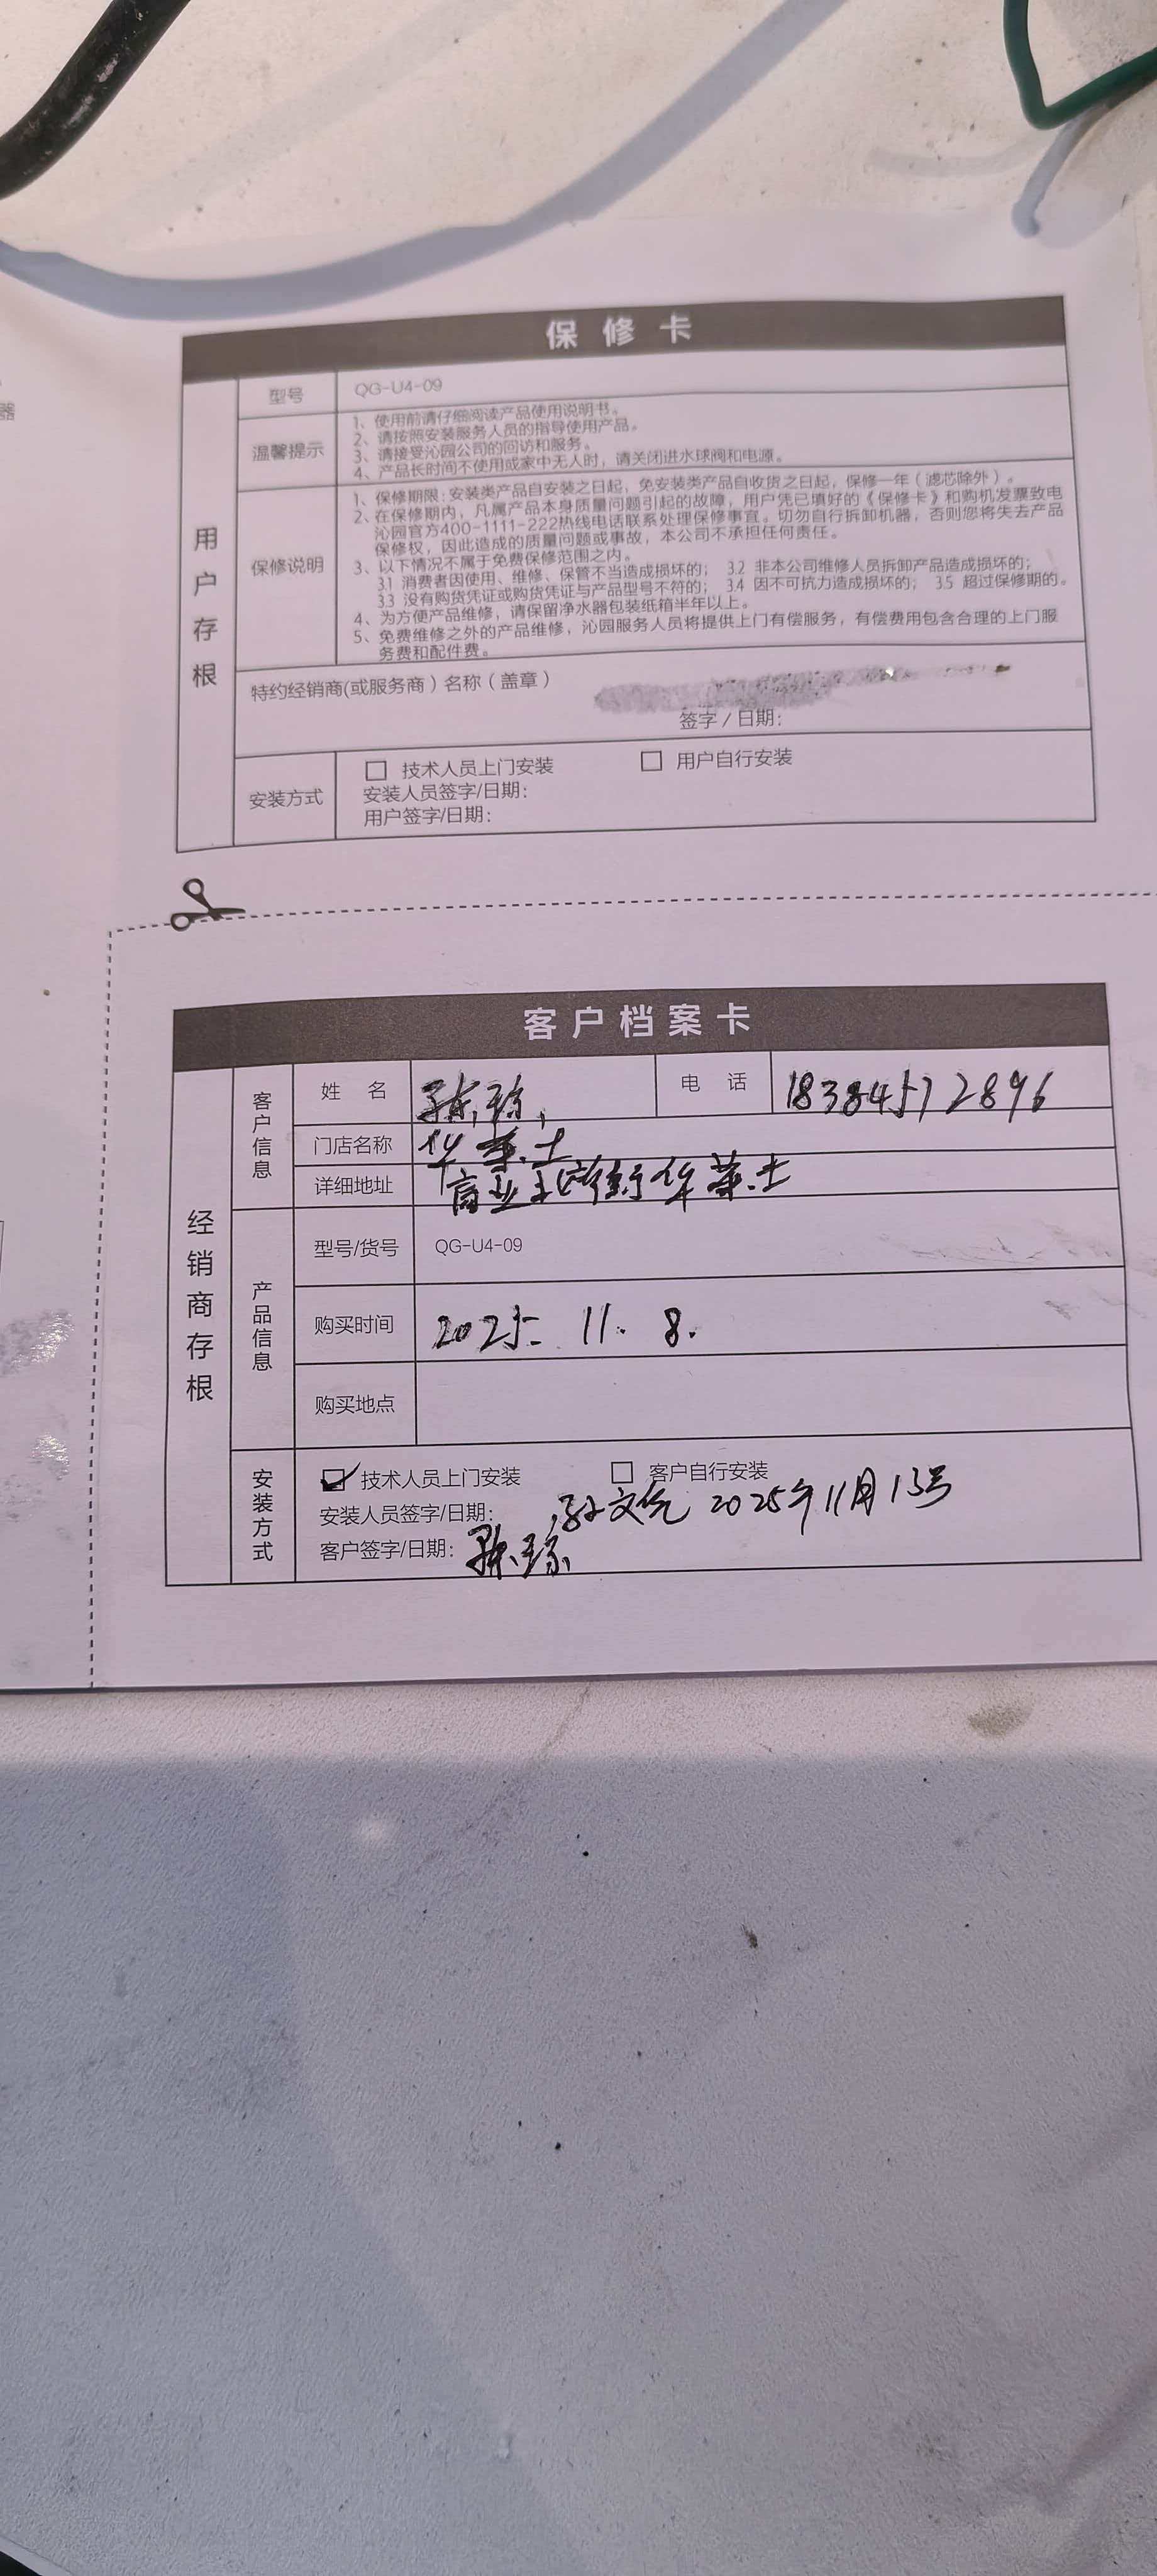 器
保修卡
用户存根
型号
QG-U4-09
温馨提示
1、使用前请仔细阅读产品使用说明书。
2、请按照安装服务人员的指导使用产品。
3、请接受沁园公司的回访和服务。
4、产品长时间不使用或家中无人时，请关闭进水球阀和电源。
保修说明
1、保修期限：安装类产品自安装之日起，免安装类产品自收货之日起，保修一年（滤芯除外）。
2、在保修期内，凡属产品本身质量问题引起的故障，用户凭已填好的《保修卡》和购机发票致电
沁园官方400-1111-222热线电话联系处理保修事宜。切勿自行拆卸机器，否则您将失去产品
保修权，因此造成的质量问题或事故，本公司不承担任何责任。
3、以下情况不属于免费保修范围之内。
3.1 消费者因使用、维修、保管不当造成损坏的； 3.2 非本公司维修人员拆卸产品造成损坏的；
3.3 没有购货凭证或购货凭证与产品型号不符的； 3.4 因不可抗力造成损坏的； 3.5 超过保修期的。
4、为方便产品维修，请保留净水器包装纸箱半年以上。
5、免费维修之外的产品维修，沁园服务人员将提供上门有偿服务，有偿费用包含合理的上门服
务费和配件费。
特约经销商(或服务商）名称（盖章）
签字 / 日期：
安装方式
技术人员上门安装 用户自行安装
安装人员签字/日期：
用户签字/日期：
客户档案卡
经销商存根
客户信息
姓 名
电 话 18384572896
门店名称 华莱士
详细地址 华莱士
产品信息
型号/货号 QG-U4-09
购买时间 2025. 11. 8.
购买地点
安装方式
技术人员上门安装 客户自行安装
安装人员签字/日期： 2025年11月13号
客户签字/日期：